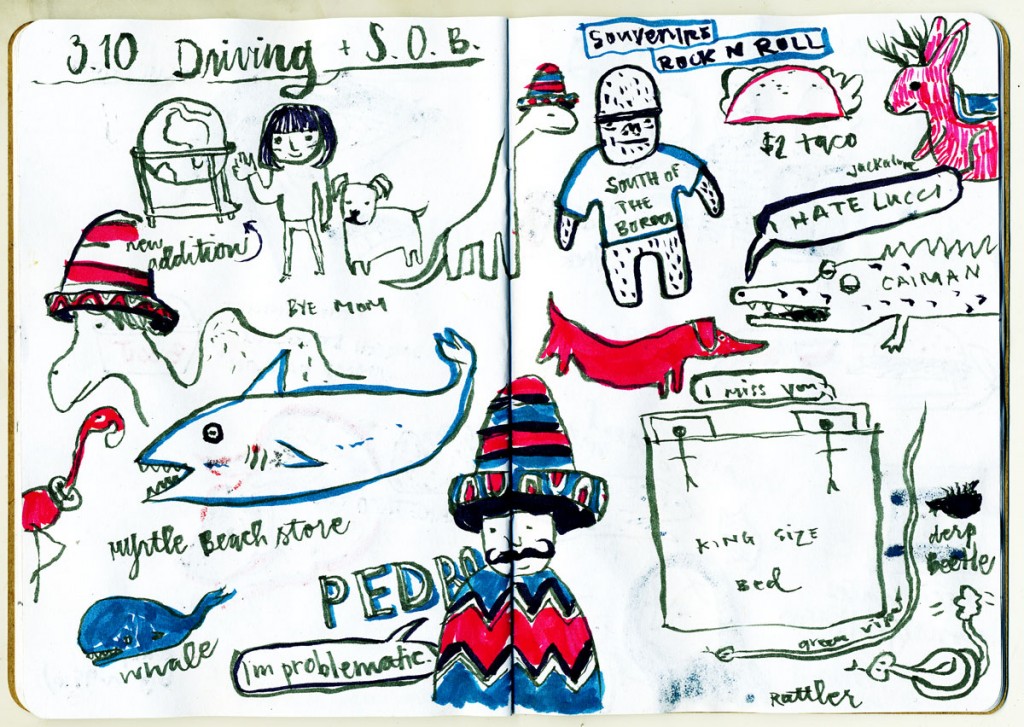 3.10 Driving + S.O.B.
new
addition
BYE MOM
Myrtle Beach store
whale
PEDRO
I'm problematic.
Souvenirs
ROCK N ROLL
$2 taco
SOUTH OF
THE
BORDER
I HATE LUCCI
CAIMAN
I miss you
KING SIZE
Bed
derp
Beetle
green
Rattler